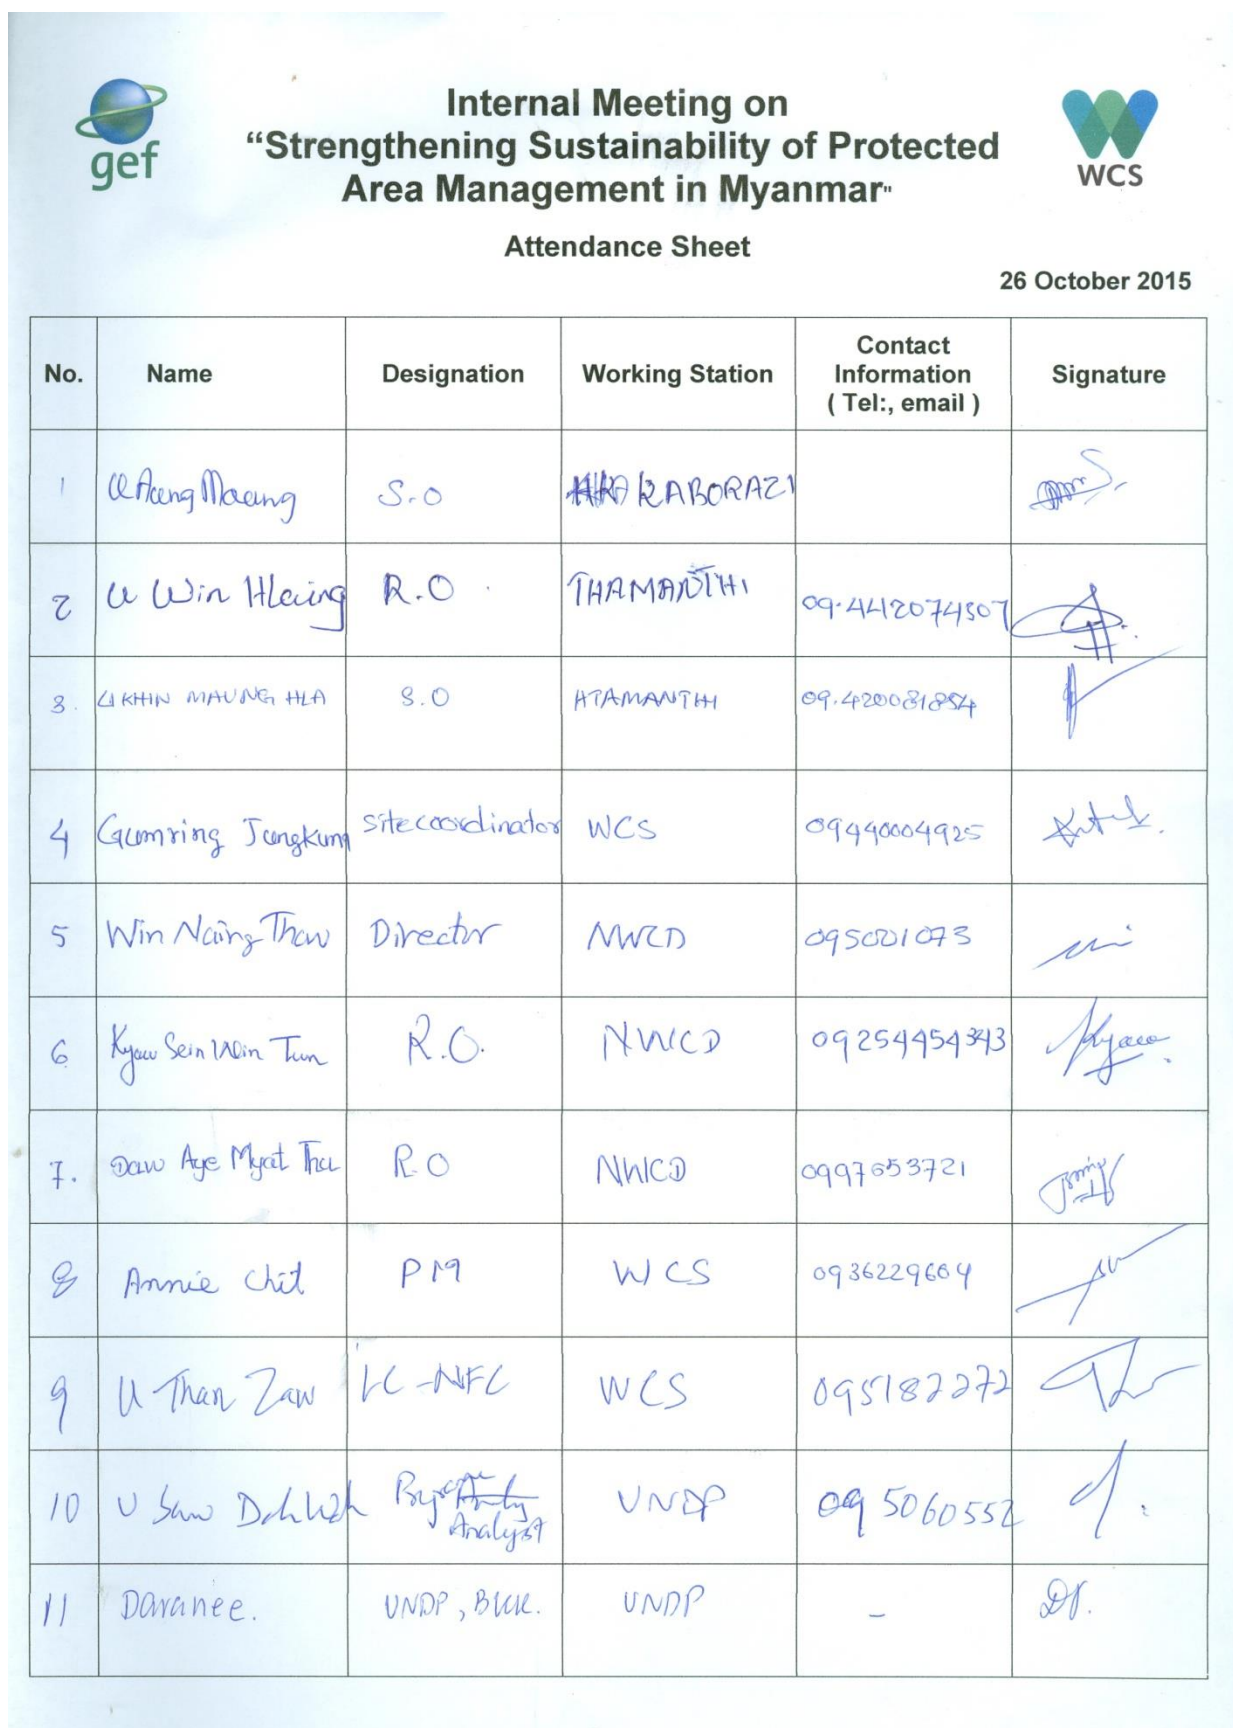 gef
WCS
Internal Meeting on
“Strengthening Sustainability of Protected
Area Management in Myanmar"
Attendance Sheet
26 October 2015
No. Name Designation Working Station Contact Information ( Tel:, email ) Signature
1 U Aung Maung S.O KABORAZI
2 U Win Hlaing R.O THAMANTHI 09.442074507
3. U KHIN MAUNG HLA S.O HTAMANTHI 09.420081854
4 Gumring Jungkung site coordinator WCS 09440004925
5 Win Naing Thaw Director NWCD 095001073
6 Kyaw Sein Win Tun R.O. NWCD 09254454343 Kyaw
7. Daw Aye Myat Thu R.O NWCD 0997653721
8 Annie Chit PM WCS 0936229604
9 U Than Zaw LC-NFC WCS 095182272
10 U Saw Analyst UNDP 09 5060552
11 Daranee. UNDP, BKK. UNDP -